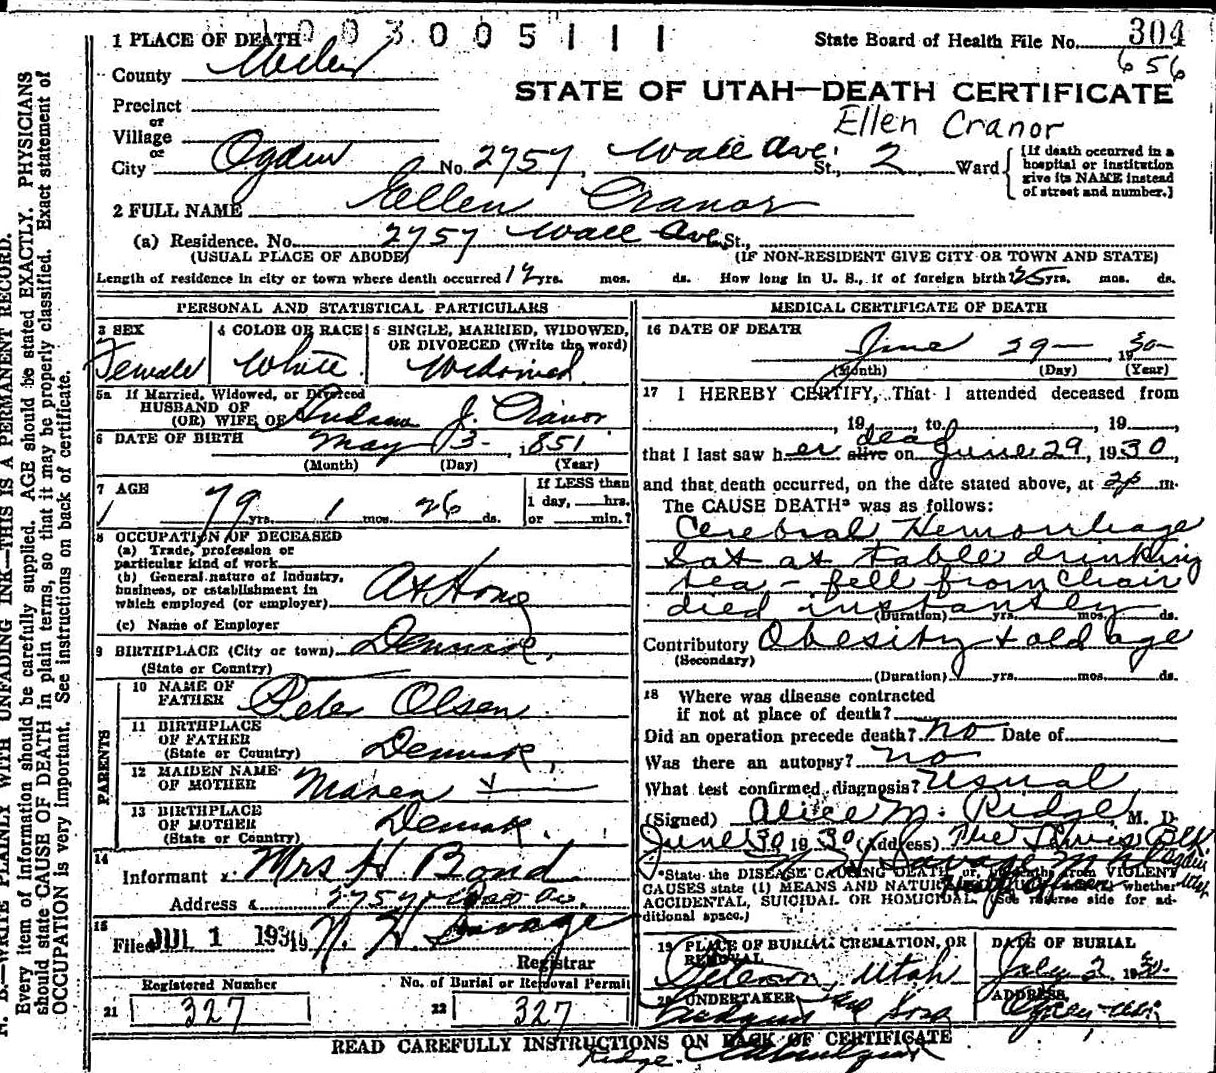 1 PLACE OF DEATH 003005111
State Board of Health File No. 304
656
County Weber
STATE OF UTAH—DEATH CERTIFICATE
Precinct
or
Ellen Cranor
Village
or
City Ogden No. 2757, Wall Ave. St., 2 Ward
[If death occurred in a hospital or institution give its NAME instead of street and number.]
2 FULL NAME Ellen Cranor
(a) Residence. No. 2757 Wall Ave St.,
(USUAL PLACE OF ABODE) (IF NON-RESIDENT GIVE CITY OR TOWN AND STATE)
Length of residence in city or town where death occurred yrs. mos. ds. How long in U. S., if of foreign birth yrs. mos. ds.
PERSONAL AND STATISTICAL PARTICULARS
3 SEX 4 COLOR OR RACE 5 SINGLE, MARRIED, WIDOWED,
OR DIVORCED (Write the word)
Female White Widowed
5a If Married, Widowed, or Divorced
HUSBAND OF
(OR) WIFE OF J. Cranor
6 DATE OF BIRTH May 3 1851
(Month) (Day) (Year)
7 AGE If LESS than
1 day, hrs.
79 yrs. 1 mos. 26 ds. or min.?
8 OCCUPATION OF DECEASED
(a) Trade, profession or
particular kind of work
(b) General nature of Industry,
business, or establishment in
which employed (or employer) At Home
(c) Name of Employer
9 BIRTHPLACE (City or town) Denmark.
(State or Country)
PARENTS
10 NAME OF
FATHER Peter Olsen
11 BIRTHPLACE
OF FATHER
(State or Country) Denmark.
12 MAIDEN NAME
OF MOTHER Maren
13 BIRTHPLACE
OF MOTHER
(State or Country) Denmark.
14
Informant Mrs H Bond
Address 2757 Wall Av.
15
Filed JUL 1 1930 Savage
Registrar
Registered Number No. of Burial or Removal Permit
21 327 22 327
MEDICAL CERTIFICATE OF DEATH
16 DATE OF DEATH
June 29— , 1930
(Month) (Day) (Year)
17 I HEREBY CERTIFY, That I attended deceased from
, 19 , to , 19 ,
dead
that I last saw her alive on June 29, 1930,
and that death occurred, on the date stated above, at 2p m.
The CAUSE DEATH* was as follows:
Cerebral Hemorrhage
Sat at table drinking
tea - fell from chair
died instantly
(Duration) yrs. mos. ds.
Contributory Obesity + old age
(Secondary)
(Duration) yrs. mos. ds.
18 Where was disease contracted
if not at place of death?
Did an operation precede death? No Date of
Was there an autopsy? no
What test confirmed diagnosis? Usual
(Signed) Alice M. Ridge, M. D.
June 30 1930 (Address) The Lewis Blk.
Savage
*State the DISEASE CAUSING DEATH or, in deaths from VIOLENT
CAUSES state (1) MEANS AND NATURE whether
ACCIDENTAL, SUICIDAL OR HOMICIDAL. (See reverse side for ad-
ditional space.)
19 PLACE OF BURIAL, CREMATION, OR
REMOVAL DATE OF BURIAL
Peterson, Utah July 2 1930
20 UNDERTAKER ADDRESS
READ CAREFULLY INSTRUCTIONS ON BACK OF CERTIFICATE
Ridge
N. B.—WRITE PLAINLY WITH UNFADING INK—THIS IS A PERMANENT RECORD.
Every item of information should be carefully supplied. AGE should be stated EXACTLY. PHYSICIANS
should state CAUSE OF DEATH in plain terms, so that it may be properly classified. Exact statement of
OCCUPATION is very important. See instructions on back of certificate.